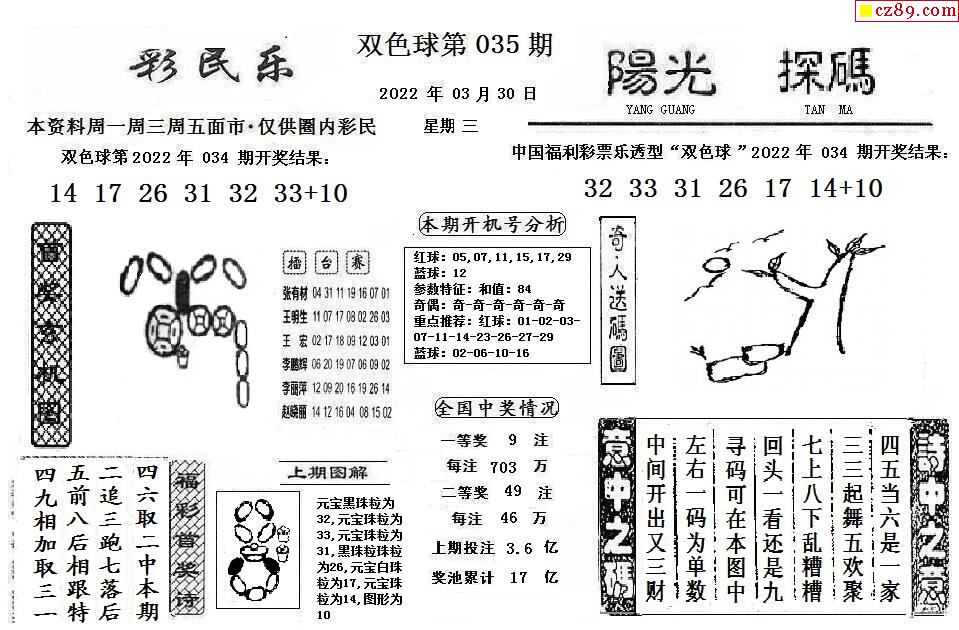 cz89.com
彩民乐
双色球第 035 期
2022 年 03 月 30 日
本资料周一周三周五面市·仅供圈内彩民
星期 三
双色球第2022 年 034 期开奖结果:
14 17 26 31 32 33+10
陽光 探碼
YANG GUANG TAN MA
中国福利彩票乐透型“双色球 ”2022 年 034 期开奖结果:
32 33 31 26 17 14+10
擂台赛
张有材 04 31 11 19 16 07 01
王明生 11 07 17 08 02 26 03
王 宏 02 17 18 09 12 03 01
李鹏辉 06 20 19 07 06 09 02
李丽萍 12 09 20 16 19 26 14
赵晓丽 14 12 16 04 08 15 02
本期开机号分析
红球: 05,07,11,15,17,29
蓝球: 12
参数特征: 和值: 84
奇偶: 奇-奇-奇-奇-奇-奇
重点推荐: 红球: 01-02-03-
07-11-14-23-26-27-29
蓝球: 02-06-10-16
奇·人送碼圖
全国中奖情况
一等奖 9 注
每注 703 万
二等奖 49 注
每注 46 万
上期投注 3.6 亿
奖池累计 17 亿
福彩首奖诗
四六取二中本期
二追三跑七落后
五前八后相跟特
四九相加取三一
上期图解
元宝黑珠粒为
32,元宝珠粒为
33,元宝珠粒为
31,黑珠粒珠粒
为26,元宝白珠
粒为17,元宝珠
粒为14,图形为
10
四五当六是一家
三三起舞五欢聚
七上八下乱糟糟
回头一看还是九
寻码可在本图中
左右一码为单数
中间开出又三财